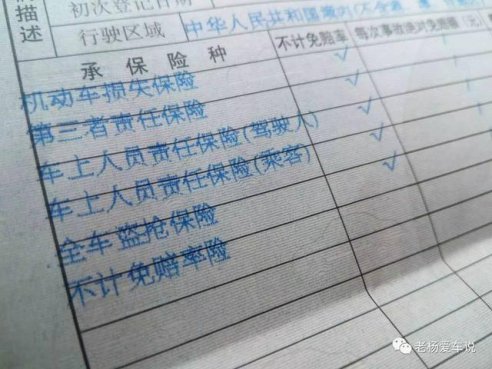 描述
初次登记日期
行驶区域 中华人民共和国境内(不含港
承保险种 不计免赔率 每次事故绝对免赔额(元)
机动车损失保险 √
第三者责任保险 √
车上人员责任保险(驾驶人) √
车上人员责任保险(乘客) √
全车盗抢保险 √
不计免赔率险
老杨爱车说